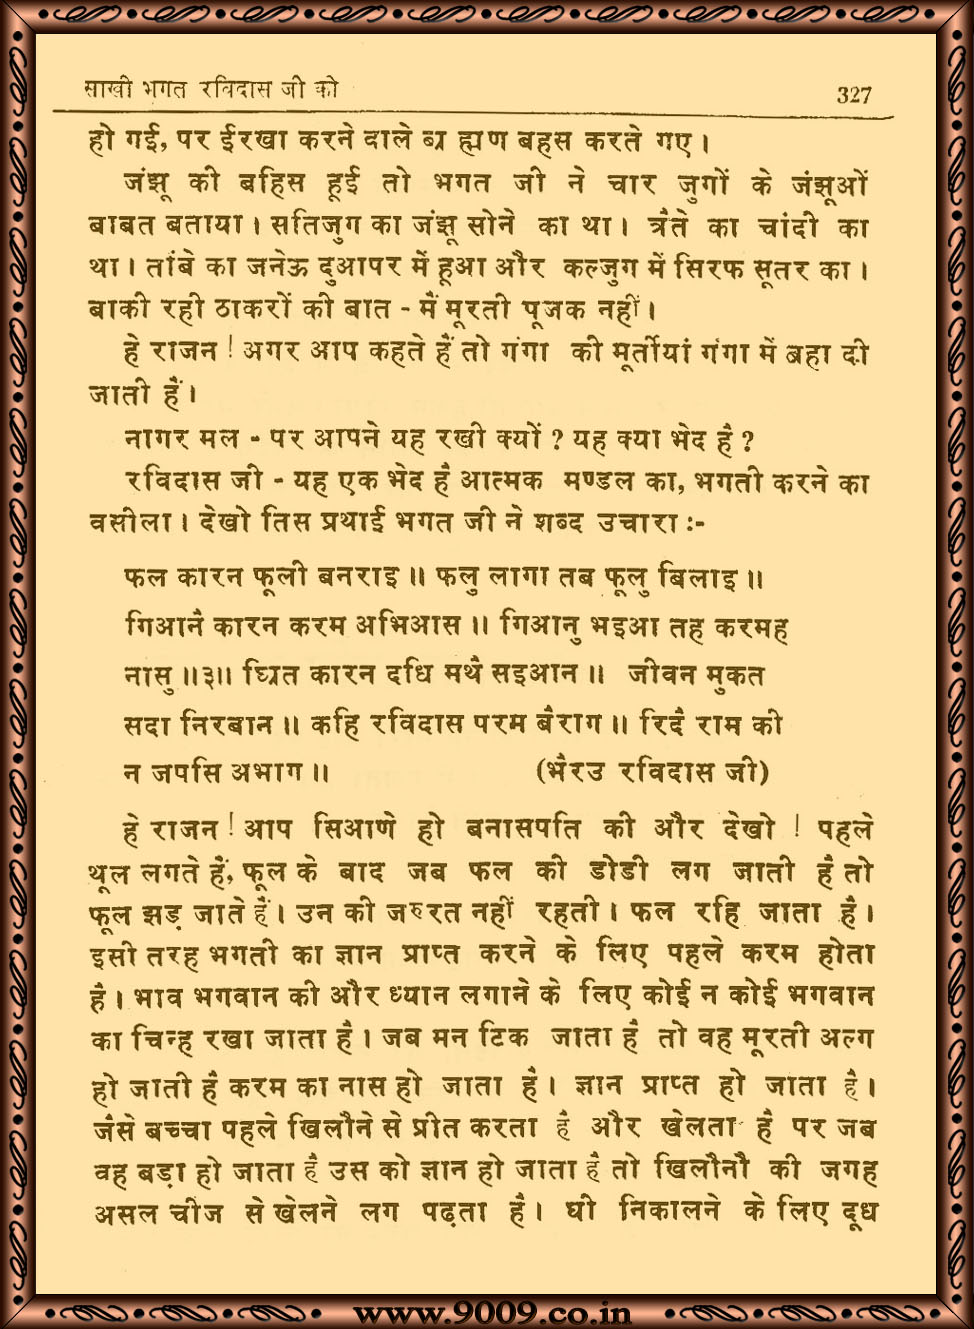 साखी भगत रविदास जी की 327
हो गई, पर ईरखा करने वाले ब्र ह्मण बहस करते गए।
जंझू की बहिस हूई तो भगत जी ने चार जुगों के जंझूओं
बाबत बताया। सतिजुग का जंझू सोने का था। त्रैते का चांदी का
था। तांबे का जनेऊ दुआपर में हूआ और कल्जुग में सिरफ सूतर का।
बाकी रही ठाकरों की बात - मैं मूरती पूजक नहीं।
हे राजन ! अगर आप कहते हैं तो गंगा की मूर्तीयां गंगा में बहा दी
जाती हैं।
नागर मल - पर आपने यह रखी क्यों ? यह क्या भेद है ?
रविदास जी - यह एक भेद है आत्मक मण्डल का, भगती करने का
वसीला। देखो तिस प्रथाई भगत जी ने शब्द उचारा :-
फल कारन फूली बनराइ॥ फलु लागा तब फूलु बिलाइ॥
गिआनै कारन करम अभिआस॥ गिआनु भइआ तह करमह
नासु॥३॥ घ्रित कारन दधि मथै सइआन॥ जीवन मुकत
सदा निरबान॥ कहि रविदास परम बैराग॥ रिदै राम की
न जपसि अभाग॥ (भैरउ रविदास जी)
हे राजन ! आप सिआणे हो बनासपति की और देखो ! पहले
थूल लगते हैं, फूल के बाद जब फल की डोडी लग जाती है तो
फूल झड़ जाते हैं। उन की जरुरत नहीं रहती। फल रहि जाता है।
इसी तरह भगती का ज्ञान प्राप्त करने के लिए पहले करम होता
है। भाव भगवान की और ध्यान लगाने के लिए कोई न कोई भगवान
का चिन्ह रखा जाता है। जब मन टिक जाता है तो वह मूरती अल्ग
हो जाती है करम का नास हो जाता है। ज्ञान प्राप्त हो जाता है।
जैसे बच्चा पहले खिलौने से प्रीत करता है और खेलता है पर जब
वह बड़ा हो जाता है उस को ज्ञान हो जाता है तो खिलौनौ की जगह
असल चीज से खेलने लग पढ़ता है। घी निकालने के लिए दूध
www.9009.co.in